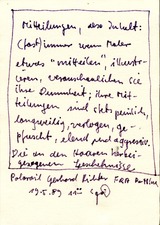 Mitteilungen, also Inhalt:
(fast) immer wenn Maler
etwas "mitteilen", illustri-
eren, veranschaulichen sie
ihre Dummheit; ihre Mit-
teilungen sind stets peinlich,
langweilig, verlogen, ge-
pfuscht, elend und aggressiv.
Die an den Haaren herbei-
gezogenen
Polaroid Gerhard Richter
19.5.89